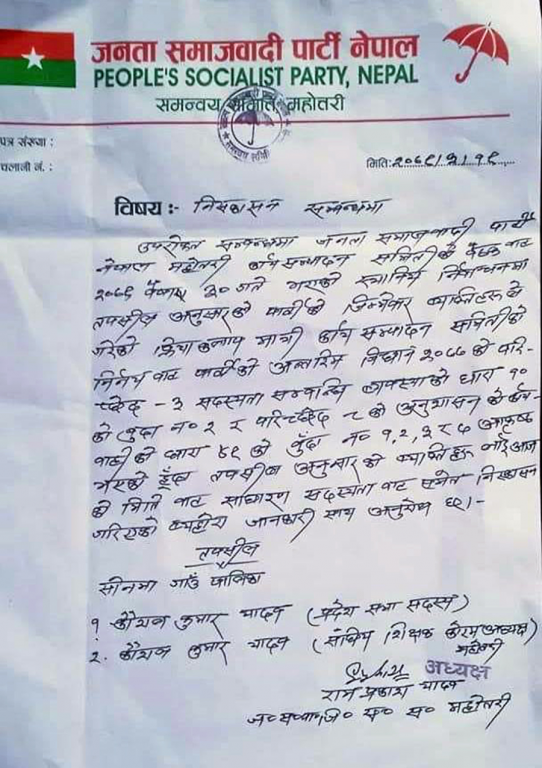 जनता समाजवादी पार्टी नेपाल
PEOPLE'S SOCIALIST PARTY, NEPAL
समन्वय समिति महोत्तरी
पत्र संख्या :
चलानी नं. :
मिति:२०७९/२/१९
विषय :- निस्कासन सम्बन्धमा
उपरोक्त सम्बन्धमा जनता समाजवादी पार्टी
नेपाल महोत्तरी कार्य सम्पादन समितिको बैठक बाट
२०७९ बैशाख ३० गते भएको स्थानिय निर्वाचनमा
तपसील अनुसारको पार्टीको जिम्मेवार व्यक्तिहरुले
गरेको क्रियाकलाप माथी कार्य सम्पादन समितिको
निर्णय बाट पार्टीको अन्तरिम विधान २०७७ को परि-
च्छेद - ३ सदस्यता सम्बन्धि व्यवस्थाको धारा १०
को बुँदा नं० २ र परिच्छेद ८ को अनुशासनको कार्य-
वाहीको धारा ४९ को बुँदा नं० १,२,३ र ५ आकृष्ट
भएको हुँदा तपसील अनुसारको व्यक्तिहरु लाई आज
को मिति बाट साधारण सदस्यता बाट समेत निस्कासन
गरिएको व्यहोरा जानकारी साथ अनुरोध छ।-
तपसील
सोनमा गाउँ पालिका
१ कुमार यादव (प्रदेश सभा सदस्य)
२. कुमार यादव (संघिय शिक्षक अध्यक्ष)
महोत्तरी
अध्यक्ष
राम प्रकाश यादव
महोत्तरी